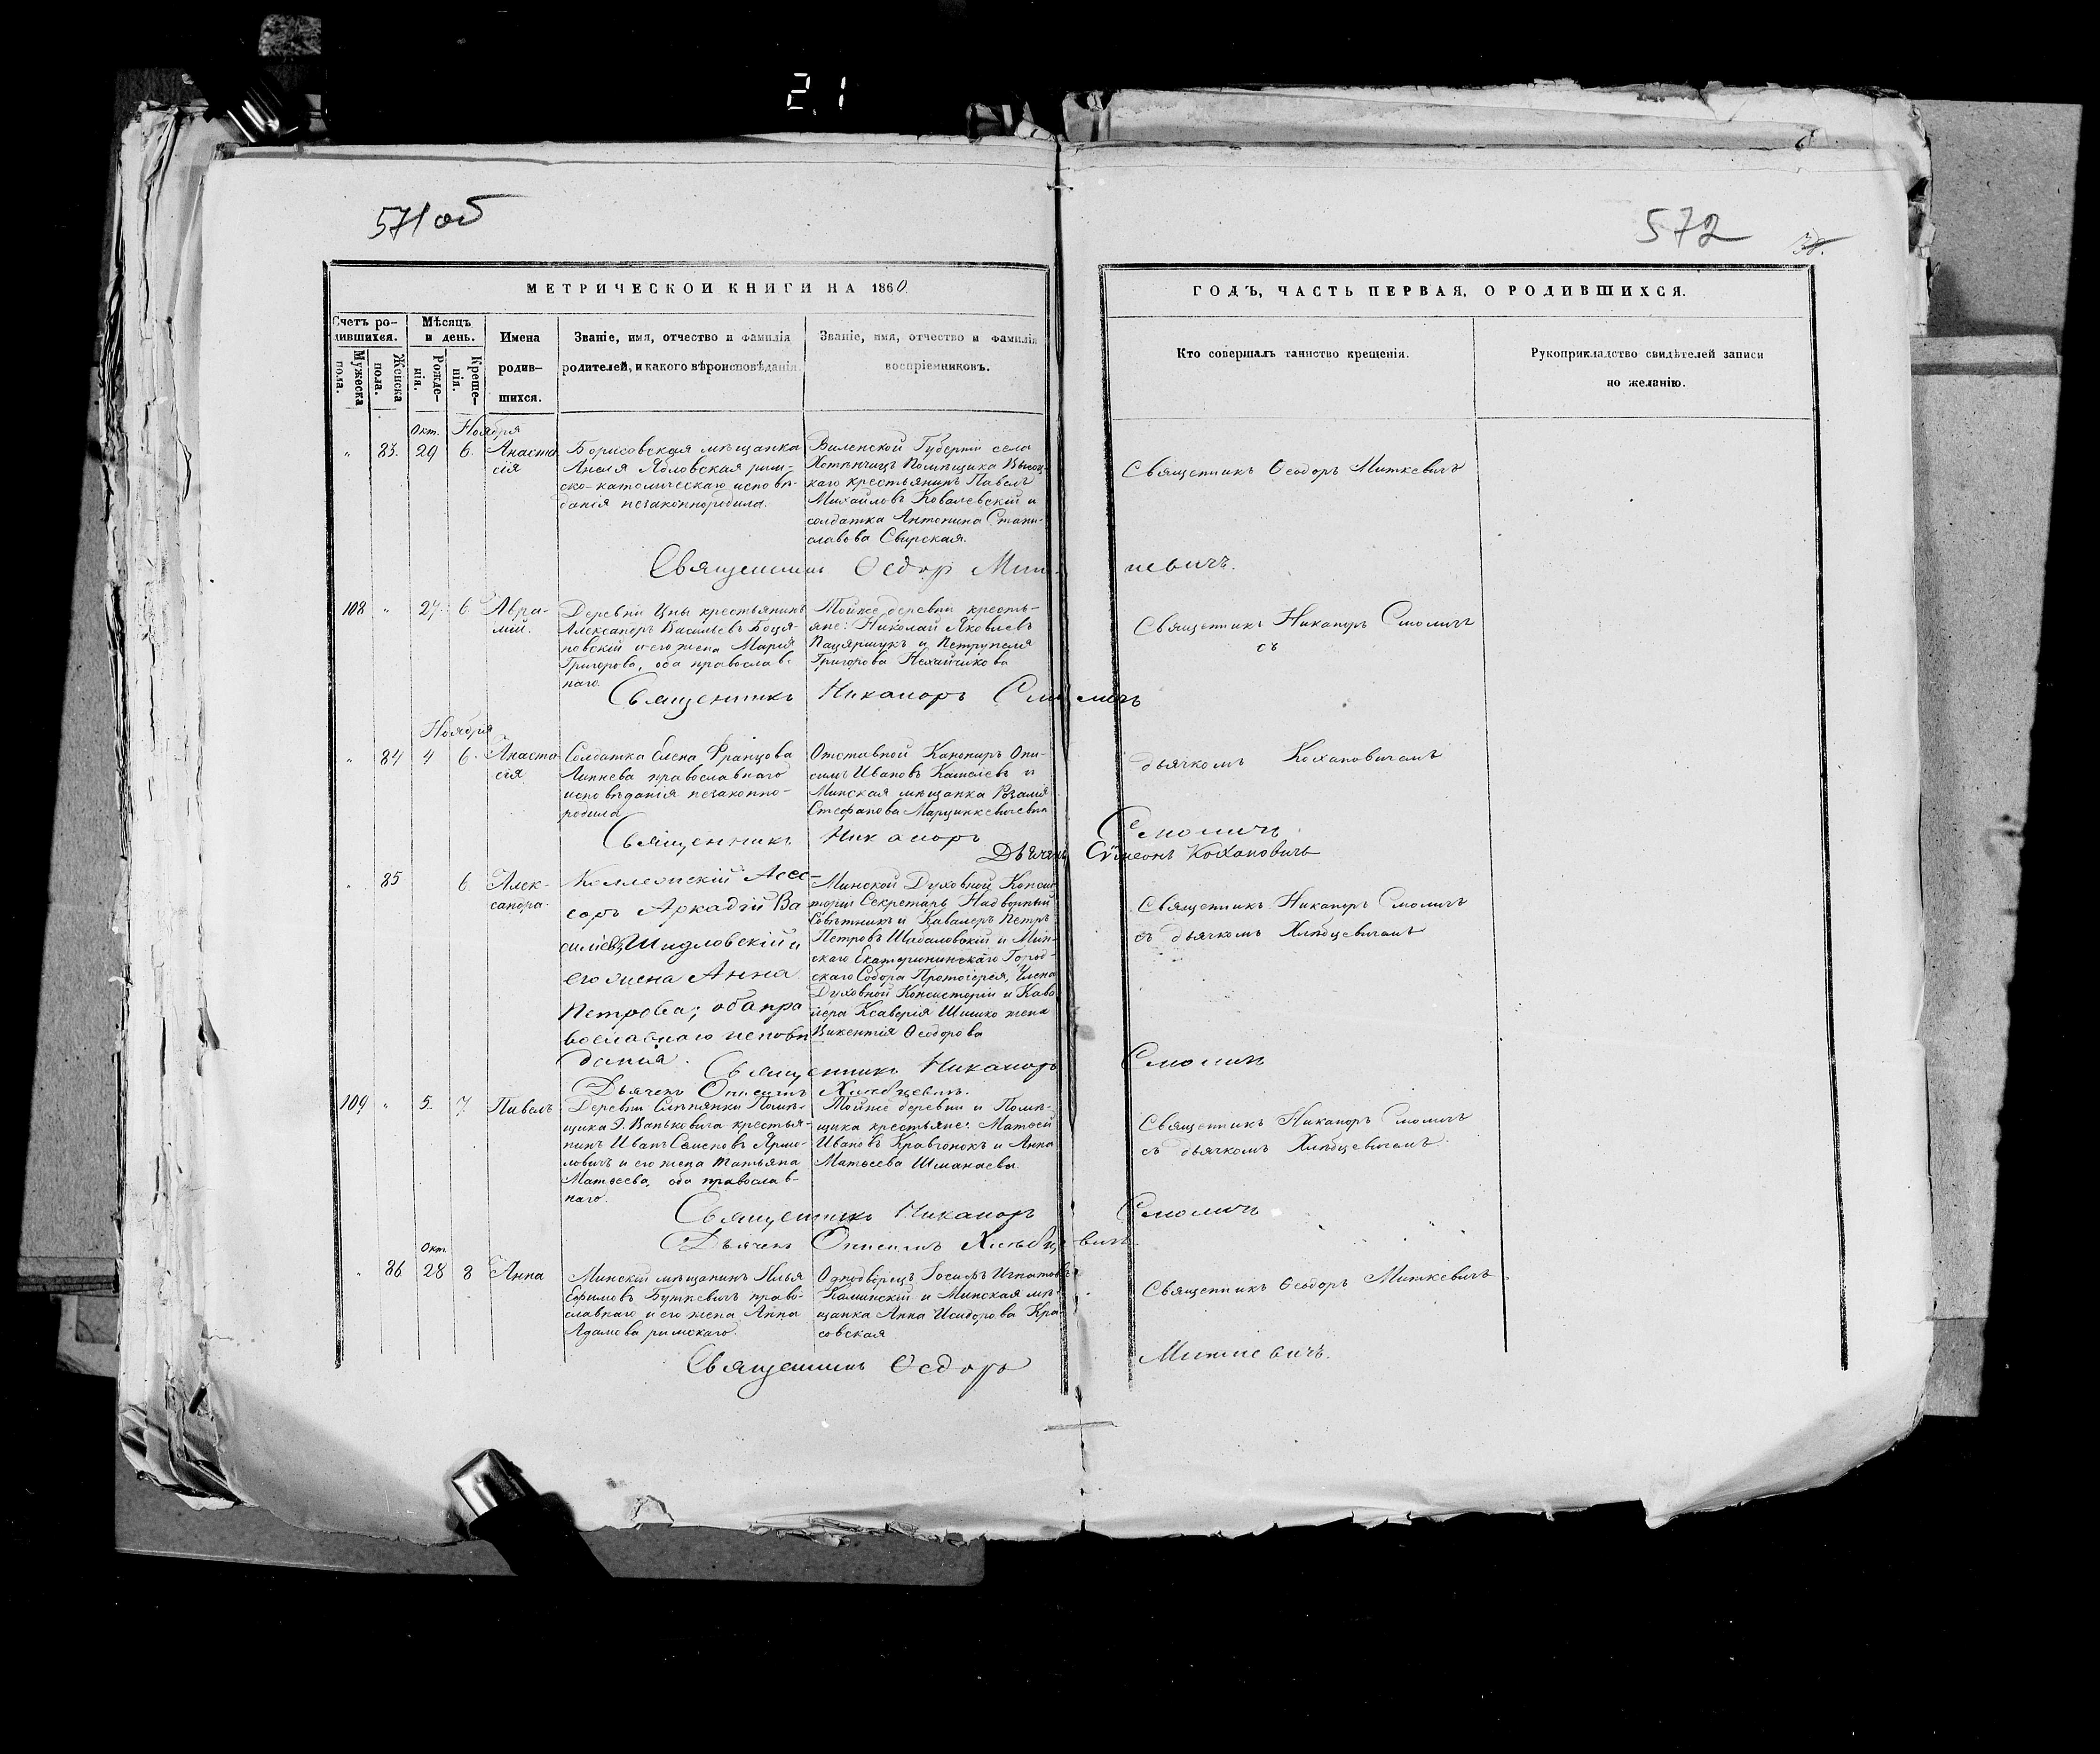 21
571 об
572
МЕТРИЧЕСКОЙ КНИГИ НА 1860
ГОДЪ, ЧАСТЬ ПЕРВАЯ, О РОДИВШИХСЯ.
Счетъ ро-
дившихся.
Мужеска
пола.
Женска
пола.
Мѣсяцъ
и день.
Рожде-
нія.
Креще-
нія.
Имена
родив-
шихся.
Званіе, имя, отчество и фамилія
родителей, и какого вѣроисповѣданія.
Званіе, имя, отчество и фамилія
воспріемниковъ.
Кто совершалъ таинство крещенія.
Рукоприкладство свидѣтелей записи
по желанію.
Окт. Ноября
" 83. 29 6. Анаста
сія
Борисовская мѣщанка
Анеля Яловская рим-
ско-католическаго исповѣ-
данія незаконнородила.
Виленской Губерніи села
помѣщика Высоц-
каго крестьянинъ Павелъ
Михайловъ Ковалевскій и
солдатка Антонина Стани-
славова Свирская.
Священникъ Ѳеодоръ Миткевичъ
Священникъ Ѳеодоръ Мит-
кевичъ.
108 " 27 6. Авра-
мій.
Деревни Цны крестьянинъ
Александръ Васильевъ Боця-
новскій и его жена Марія
Григорова, оба православ-
наго.
Тойже деревни кресть-
яне: Николай Яковлевъ
Пацяршукъ и Петрунеля
Григорова Нехайчикова
Священникъ Никаноръ Смоличъ
съ
Священникъ Никаноръ Смоличъ
Ноября
" 84 4 6. Анаста
сія
Солдатка Елена Францова
Липнева православнаго
исповѣданія незаконно-
родила
Отставной Канониръ Они-
симъ Ивановъ и
Минская мѣщанка Розалія
Стефанова Марцинкевичева
дьячкомъ Кохановичемъ
Священникъ Никаноръ Смоличъ
Дьячекъ Сѵмеонъ Кохановичъ
" 85 6. Алек-
сандра.
Коллежскій Асес-
соръ Аркадій Ва
сильевъ Шидловскій и
его жена Анна
Петрова; оба пра
вославнаго исповѣ
данія.
Минской Духовной Консис
торіи Секретарь Надворный
Совѣтникъ и Кавалеръ Петръ
Петровъ и Мин-
скаго Екатерининскаго Город-
скаго Собора Протоіерея, Члена
Духовной Консисторіи и Кава
лера Ксаверія Шишко жена
Викентія Ѳеодорова
Священникъ Никаноръ Смоличъ
съ дьячкомъ Хлѣбцевичемъ
Священникъ Никаноръ Смоличъ
Дьячекъ Онисимъ Хлебцевичъ.
109 " 5. 7. Павелъ
Деревни Слѣпянки Помѣ-
щика Э. Ваньковича крестья-
нинъ Иванъ Семеновъ Ярмо-
ловичъ и его жена Татьяна
Матѳеева, оба православ-
наго.
Тойже деревни и Помѣ-
щика крестьяне: Матѳей
Ивановъ Кравчонокъ и Анна
Матѳеева Шманаева.
Священникъ Никаноръ Смоличъ
съ дьячкомъ Хлѣбцевичемъ.
Священникъ Никаноръ Смоличъ
Дьячекъ Онисимъ Хлебцевичъ.
Окт.
" 86 28 8 Анна
Минскій мѣщанинъ Илья
Ефимовъ Буткевичъ право-
славнаго и его жена Анна
Адамова римскаго.
Однодворецъ Іосифъ Игнатовъ
Калинскій и Минская мѣ-
щанка Анна Исидорова Кра-
совская
Священникъ Ѳеодоръ Миткевичъ
Священникъ Ѳеодоръ Миткевичъ.